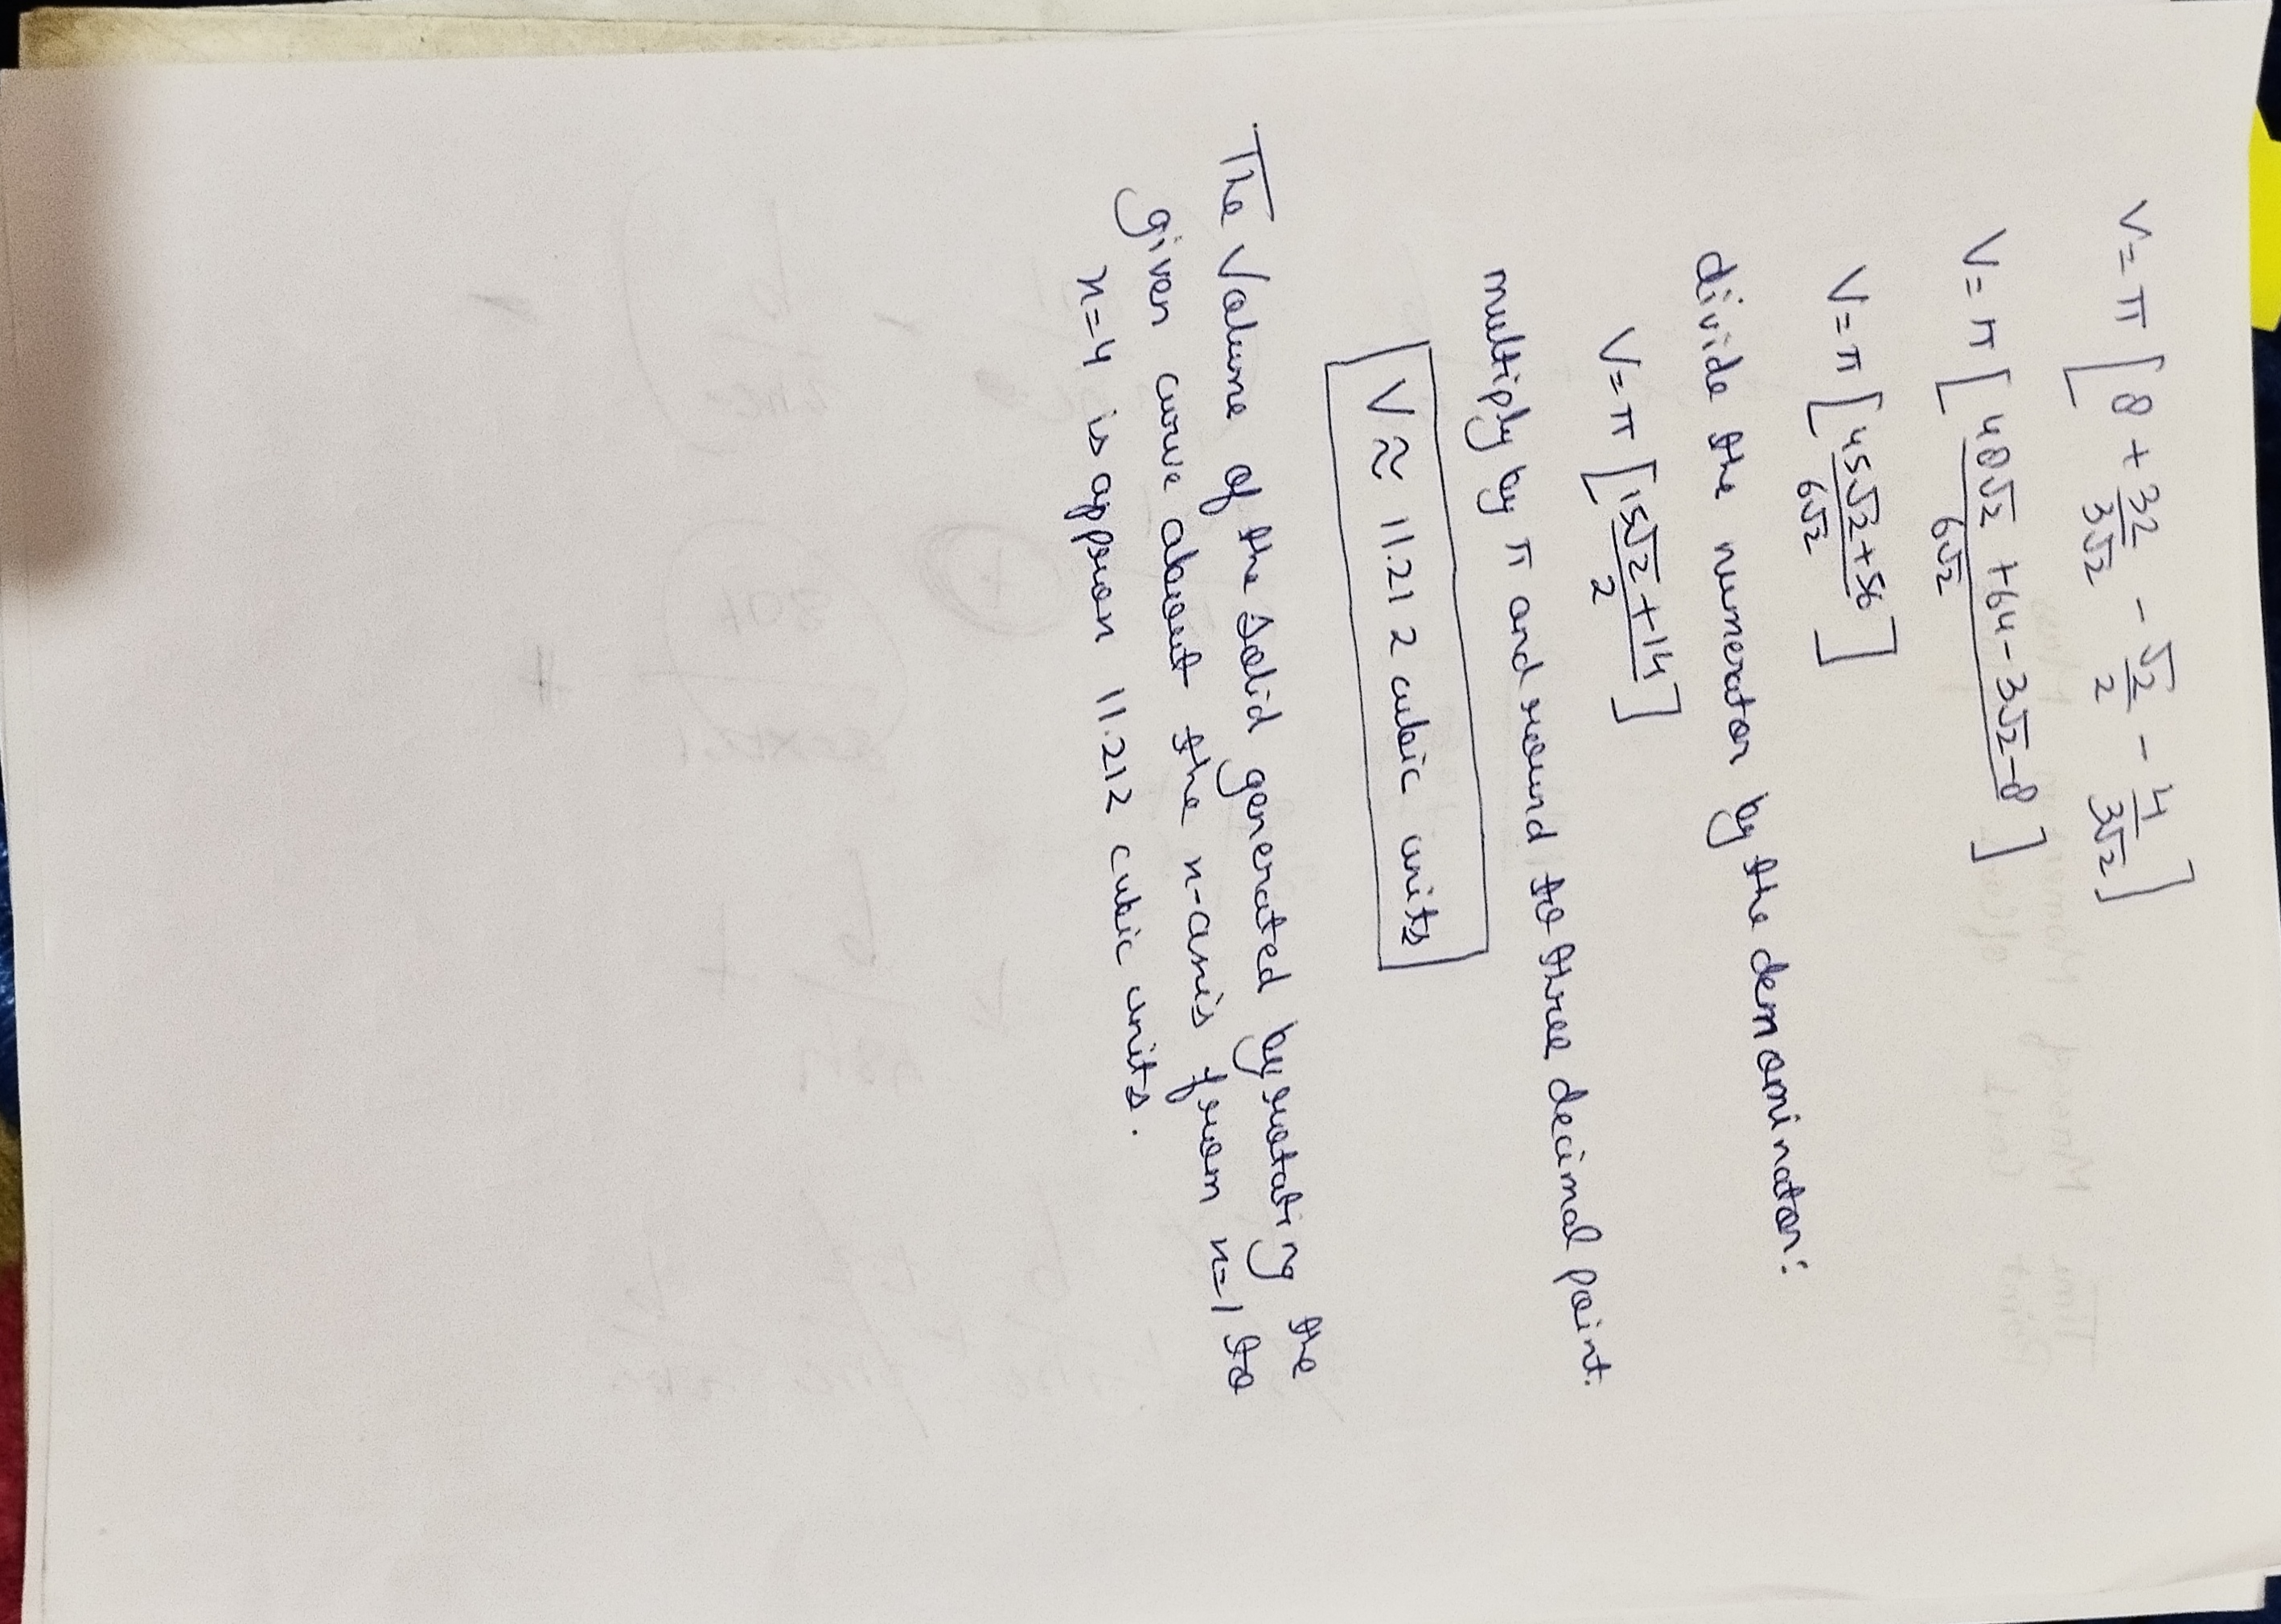 V = π [8 + 32/3√2 - √2/2 - 4/3√2]
V = π [48√2 + 64 - 3√2 - 8 / 6√2]
V = π [45√2 + 56 / 6√2]
divide the numerator by the demominator:
V = π [15√2 + 14 / 2]
multiply by π and round to three decimal point.
V ≈ 11.212 cubic units
The Volume of the solid generated by rotating the
given curve about the x-axis from x=1 to
x=4 is approx 11.212 cubic units.